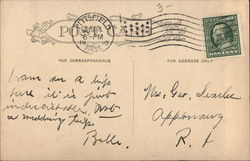 3-
PITTSFIELD
6-PM
MASS.
POST CARD
FOR CORRESPONDENCE
FOR ADDRESS ONLY
I am on a trip
here it is just
indescribable. Not
a wedding trip.
Belle.
Mrs. Geo.
Apponaug
R. I